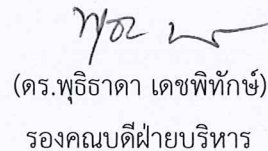 (ดร.พุธิธาดา เดชพิทักษ์)
รองคณบดีฝ่ายบริหาร